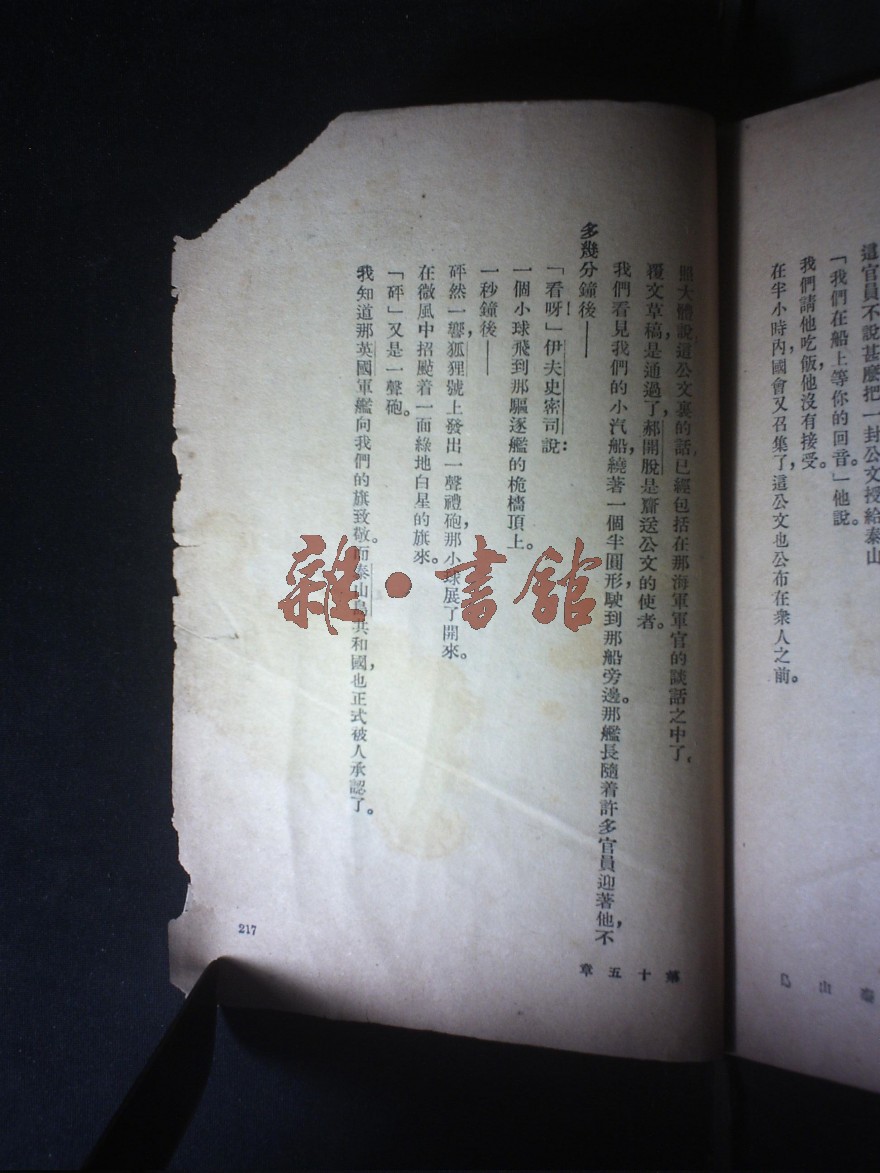 這官員不說甚麼把一封公文授給泰山
「我們在船上等你的回音。」他說。
我們請他吃飯,他沒有接受。
在半小時內,國會又召集了,這公文也公布在衆人之前。
照大體說這公文裏的話已經包括在那海軍軍官的談話之中了,
覆文草稿,是通過了,郝開脫是齎送公文的使者。
我們看見我們的小汽船,繞著一個半圓形,駛到那船旁邊。那艦長隨着許多官員迎著他,不
多幾分鐘後——
「看呀!」伊夫史密司說:
一個小球飛到那驅逐艦的桅檣頂上。
一秒鐘後——
砰然一響,狐狸號上發出一聲禮砲,那小球展了開來。
在微風中招颭着一面綠地白星的旗來。
「砰」又是一聲砲。
我知道那英國軍艦向我們的旗致敬。而泰山島共和國,也正式被人承認了。
第十五章
217
泰山島
雜·書館